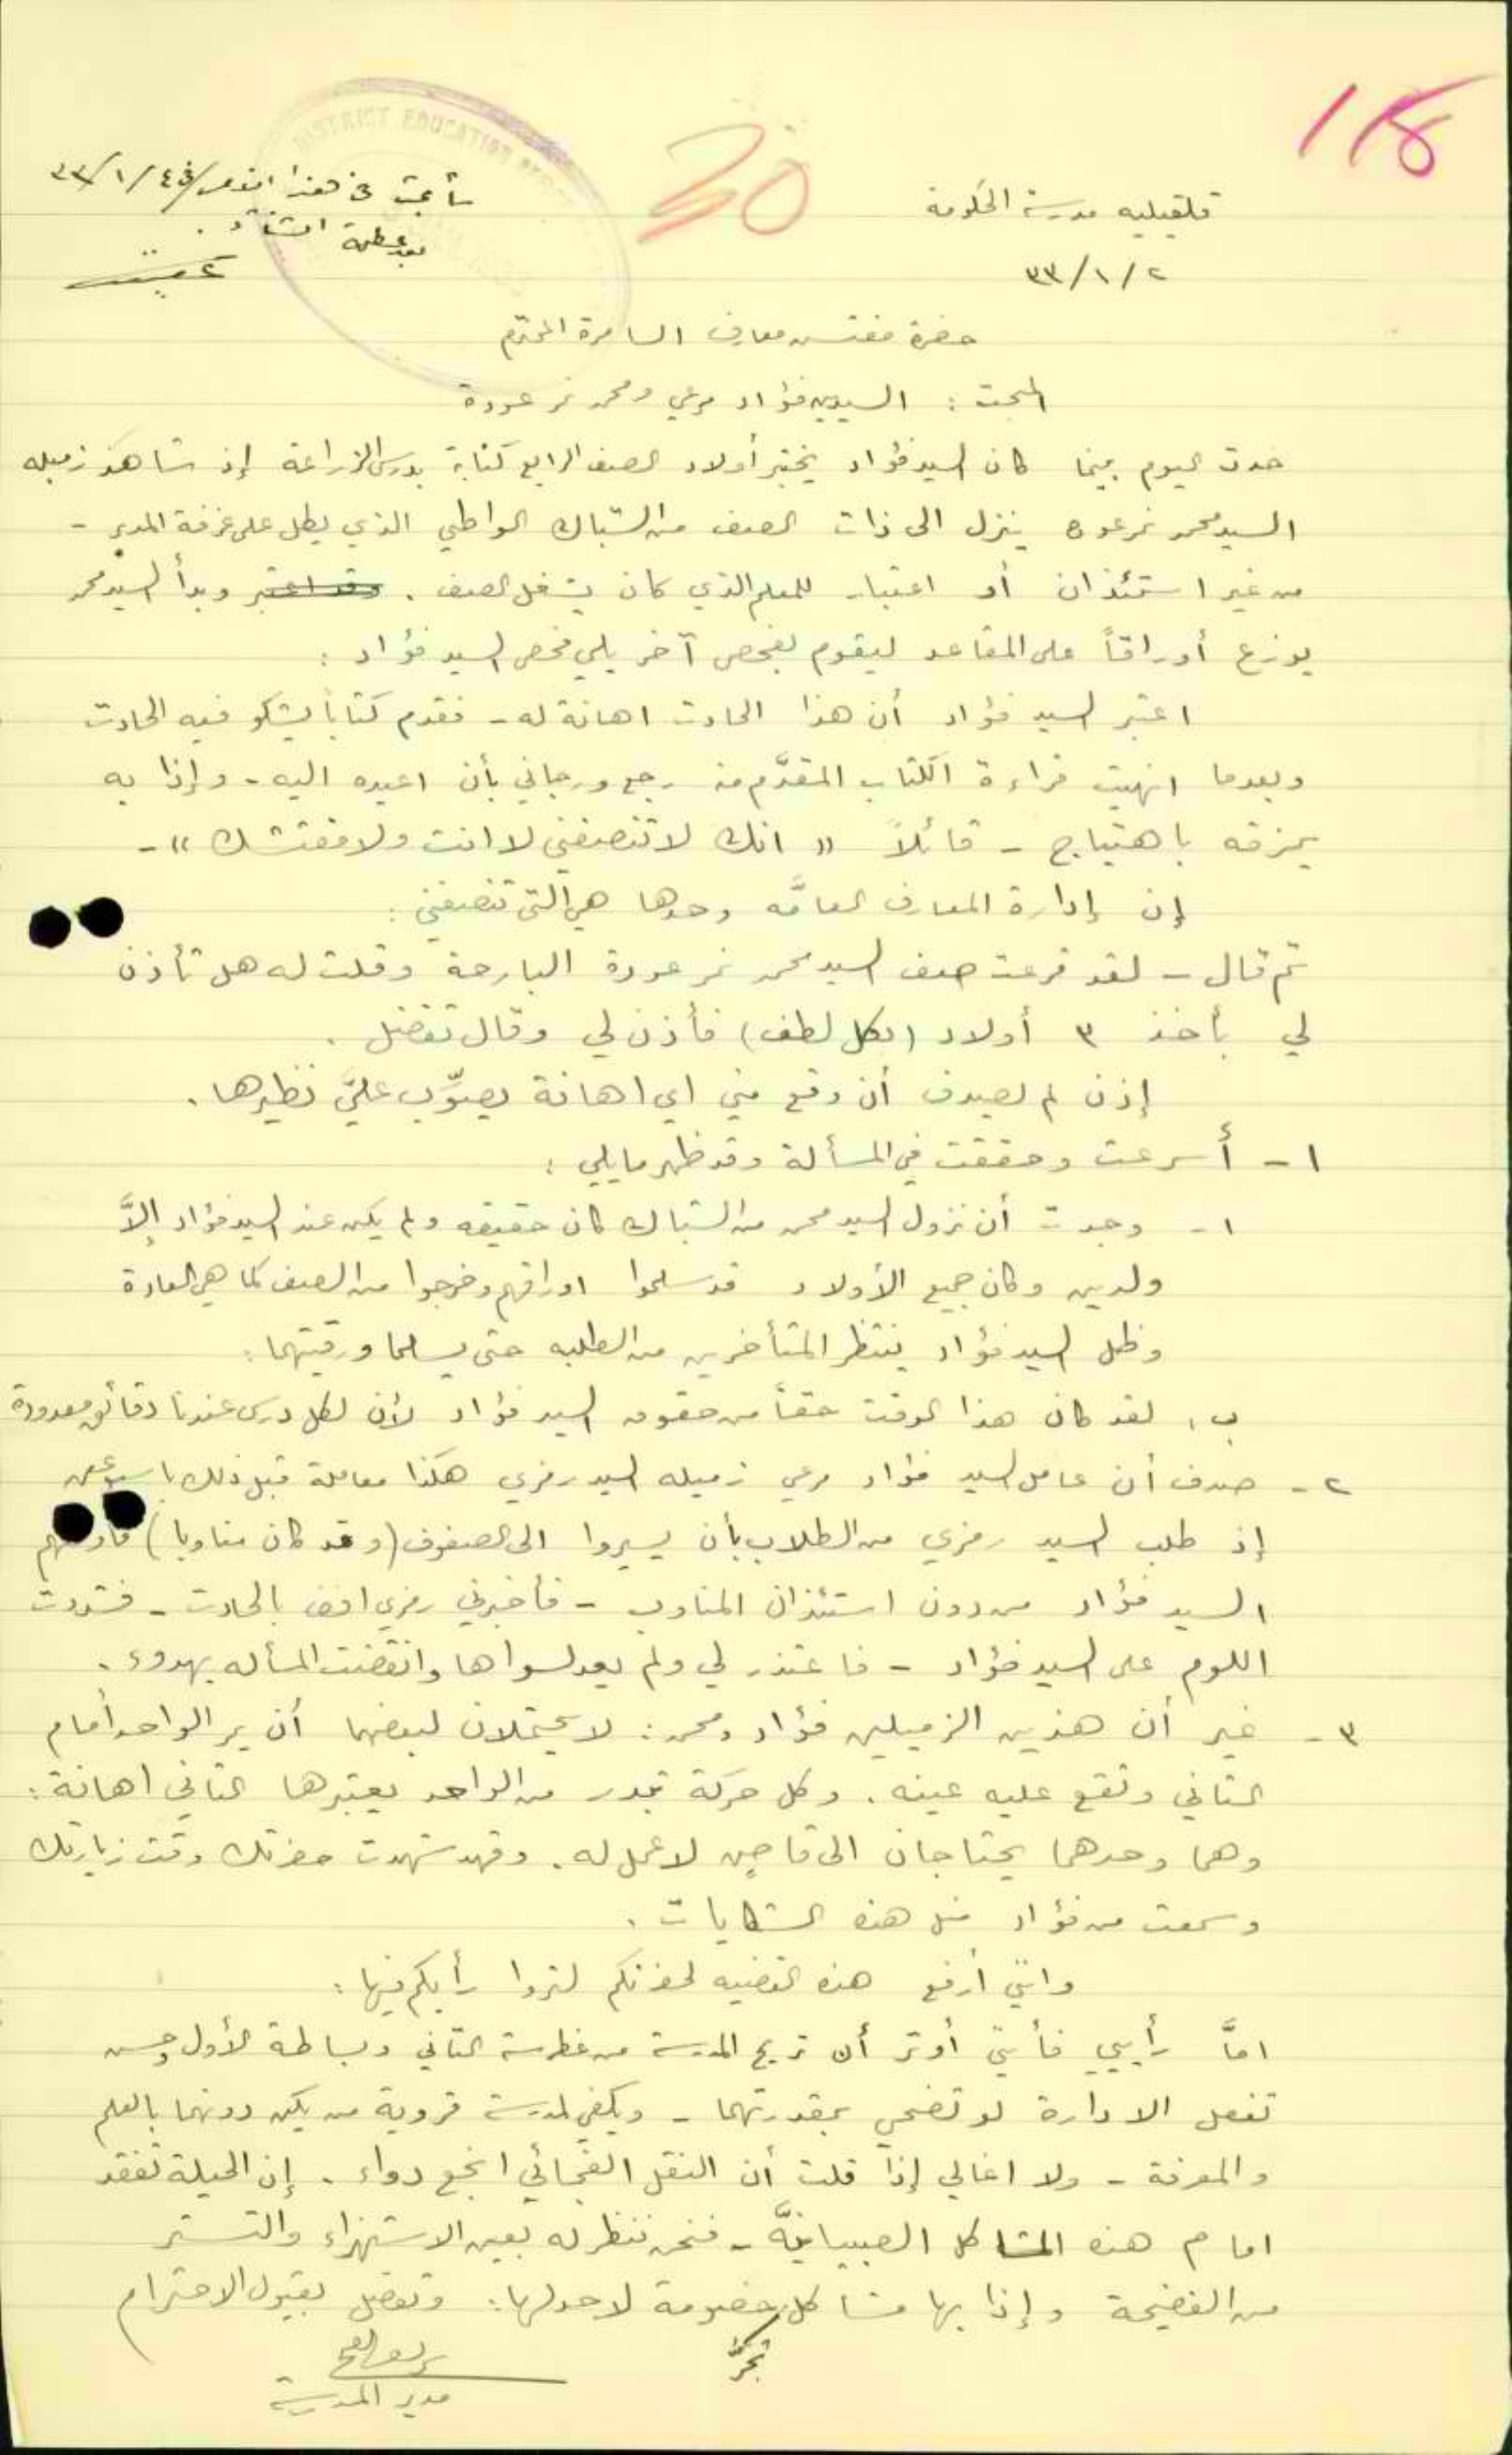 118
30
DISTRICT EDUCATION
سأبحث في هذا
بعد عطلة الشتاء.
قلقيليه مدرسة الحكومة
٣٣/١/٢
حضرة مفتش معارف السامرة المحترم
المبحث : السيدين فؤاد مرعي ومحمد نمر عودة
حدث اليوم بينما كان السيد فؤاد يختبر أولاد الصف الرابع كتابة بدرس الزراعة إذ شاهد زميله
السيد محمد نمر عوده ينزل الى ذات الصف من الشباك الواطي الذي يطل على غرفة المدير -
من غير استئذان أو اعتبار للمعلم الذي كان يشغل الصف . وبدأ السيد محمد
يوزع أوراقاً على المقاعد ليقوم بفحص آخر يلي فحص السيد فؤاد :
اعتبر السيد فؤاد أن هذا الحادث اهانة له - فقدم كتاباً يشكو فيه الحادث
وبعدما انهيت قراءة الكتاب المقدَّم منه رجع ورجاني بأن اعيده اليه - وإذا به
يمزقه باهتياج - قائلاً « انك لا تنصفني لا انت ولا مفتشك » -
إن إدارة المعارف العامَّه وحدها هي التي تنصفني :
ثم قال - لقد قرعت صف السيد محمد نمر عودة البارحة وقلت له هل تأذن
لي بأخذ ٣ أولاد (بكل لطف) فأذن لي وقال تفضل .
إذن لم يصدف أن وقع مني اي اهانة يصوَّب عليَّ نظيرها .
١ - أسرعت وحققت في المسألة وقد ظهر مايلي :
١ - وجدت أن نزول السيد محمد من الشباك كان حقيقه ولم يكن عند السيد فؤاد إلاَّ
ولدين وكان جميع الأولاد قد سلموا اوراقهم وخرجوا من الصف كما هي العادة
وظل السيد فؤاد ينتظر المتأخرين من الطلبه حتى يسلما ورقتيهما :
ب . لقد كان هذا الوقت حقاً من حقوق السيد فؤاد لأن لكل درس عندنا دقائق معدودة
٢ - صدف أن عامل السيد فؤاد مرعي زميله السيد رمزي هكذا معاملة قبل ذلك
إذ طلب السيد رمزي من الطلاب بأن يسيروا الى الصفوف (وقد كان مناوبا)
السيد فؤاد من دون استئذان المناوب - فأخبرني رمزي افندي بالحادث - فشددت
اللوم على السيد فؤاد - فاعتذر لي ولم يعد لسواها وانقضت المسأله بهدوء .
٣ - غير أن هذين الزميلين فؤاد ومحمد : لا يحتملان لبعضهما أن يمر الواحد أمام
الثاني وتقع عليه عينه . وكل حركة تبدر من الواحد يعتبرها الثاني اهانة :
وهما وحدهما يحتاجان الى قاضٍ لا عمل له . وقد شهدت حضرتك وقت زيارتك
وسمعت من فؤاد مثل هذه الشكايات .
وانني أرفع هذه القضيه لحضرتكم لتروا رأيكم فيها :
امَّا رأيي فأنني أوثر أن تريح المدرسة من غطرسة الثاني وبساطة الأول وحسن
تفعل الادارة لو تضحي بمقدرتهما - ويكفي لمدرسة قروية من يكن دونهما بالعلم
والمعرفة - ولا اغالي إذا قلت أن النقل الفجائي انجع دواء . إن الحيلة تفقد
امام هذه المشاكل الصبيانيَّة - فنحن ننظر له بعين الاستهزاء والتستر
من الفضيحة وإذا بها مشاكل تجرّ خصومة لا حد لها : وتفضل بقبول الاحترام
مدير المدرسة